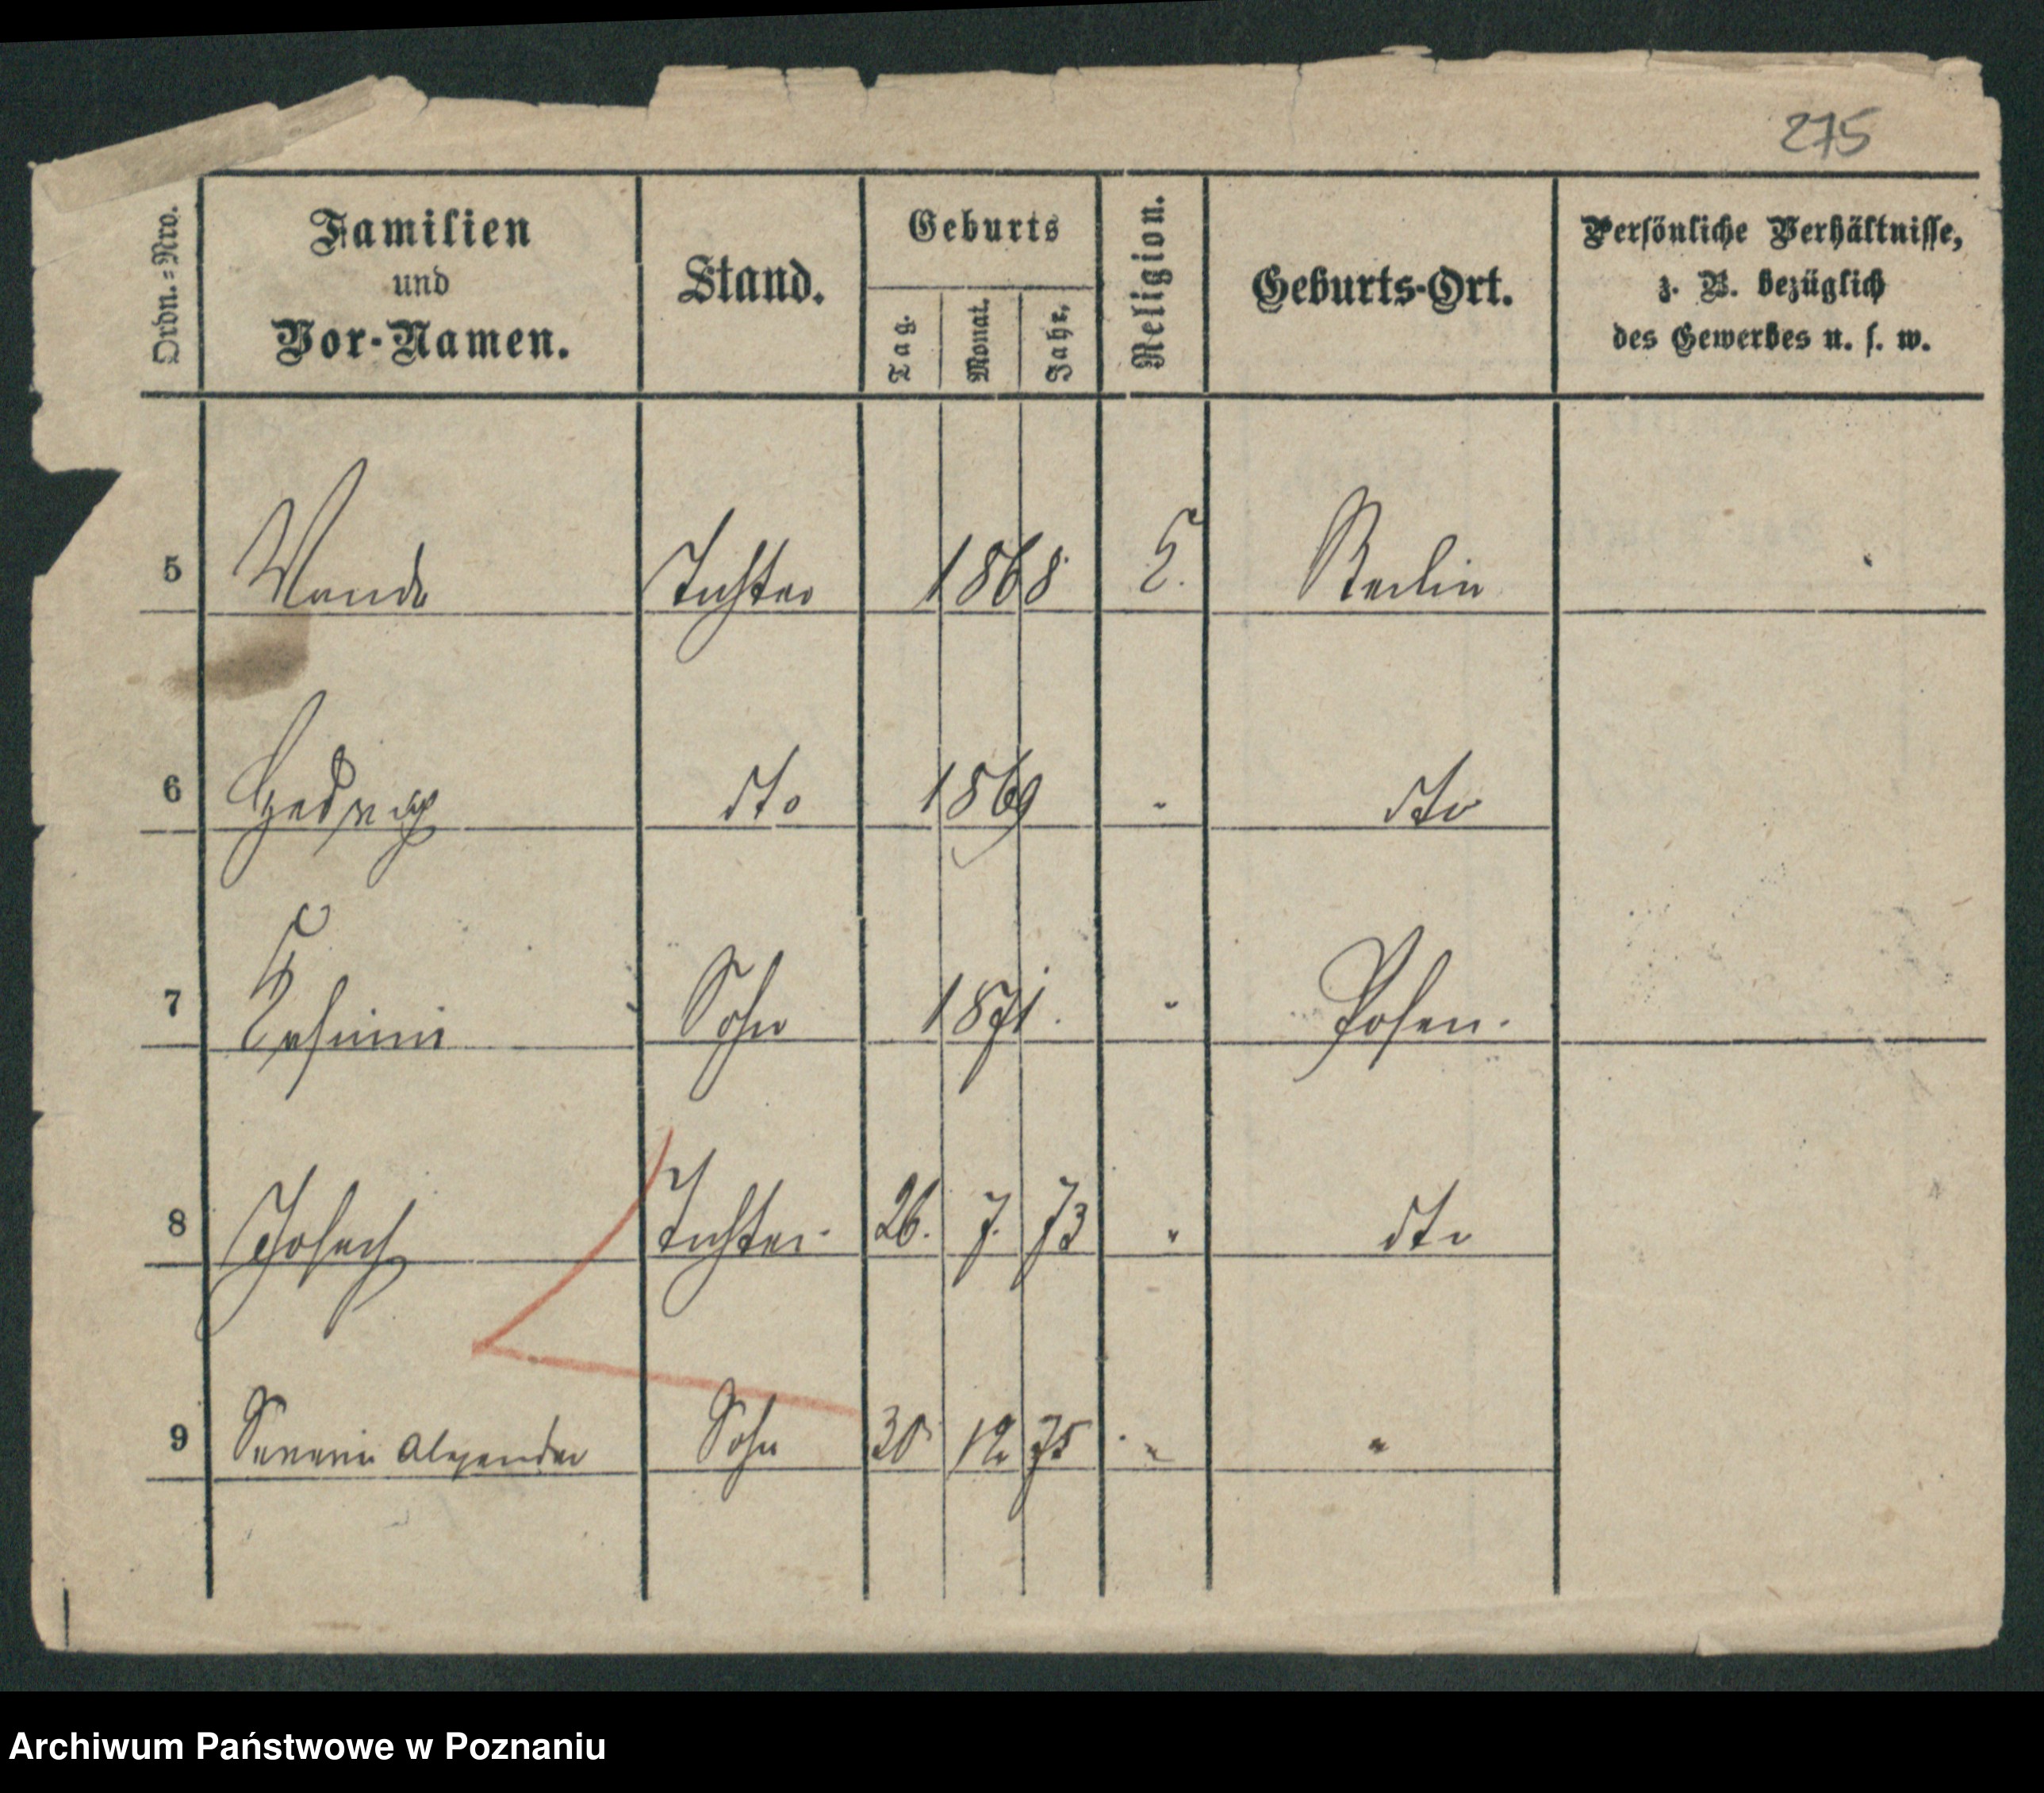 275
Ordn.=Nro.
Familien
und
Vor-Namen.
Stand.
Geburts
Tag.
Monat.
Jahr.
Religion.
Geburts-Ort.
Persönliche Verhältnisse,
z. B. bezüglich
des Gewerbes u. s. w.
5 Wanda Tochter 1868 k. Berlin
6 Hedwig dto 1869 " dto
7 Sohn 1871. " Posen.
8 Tochter 26. 7. 73 " dto
9 Severin Alexander Sohn 30 12 75 " "
Archiwum Państwowe w Poznaniu